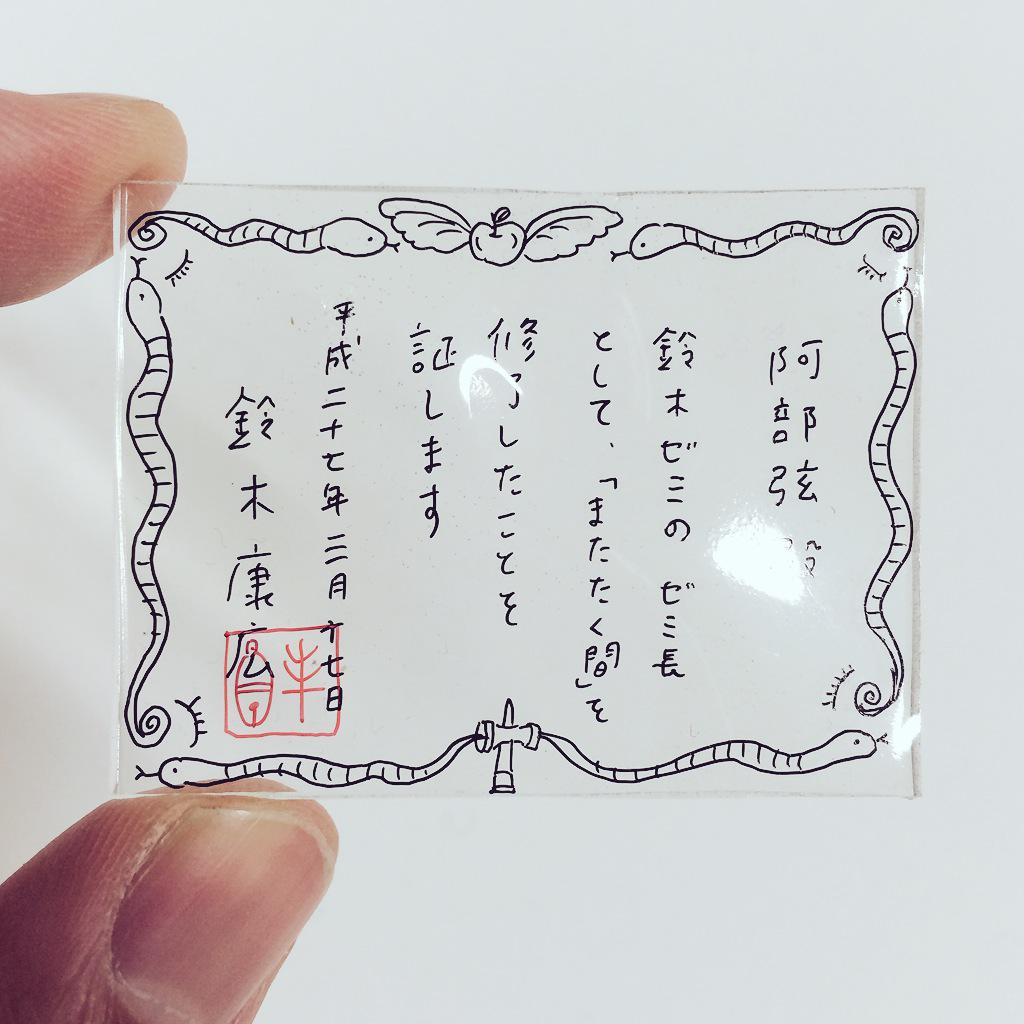 阿部弦 殿
鈴木ゼミの ゼミ長
として、「またたく間」を
修了したことを
証します
平成二十七年 三月 十七日
鈴木康広